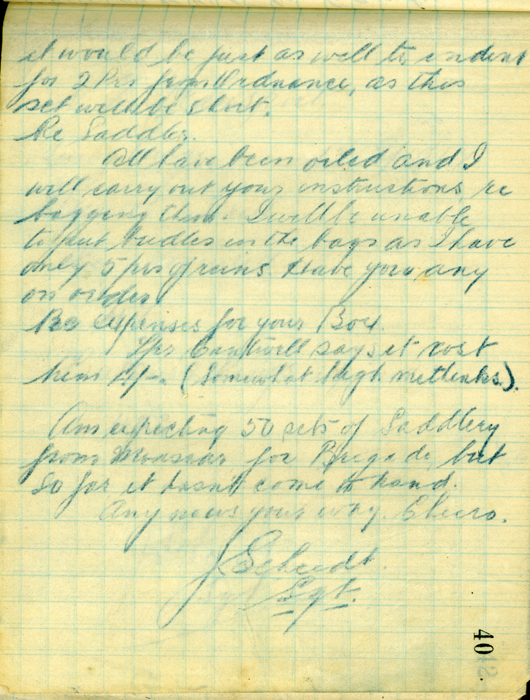 it would be just as well to indent
for 2 Prs from Ordnance, as this
set will be short.
Re Saddles.
All have been oiled and I
will carry out your instructions re
bagging them. I will be unable
to put bridles in the bags as I have
only 5 prs of reins. Have you any
on order.
Re expenses for your Box.
Tpr Cantwell says it cost
him 4/-. (Somewhat high methinks).
Am expecting 50 sets of Saddlery
from Moascar for Brigade but
so far it hasn't come to hand.
Any news your way. Cheero.
J Scheidt.
Sgt.
40